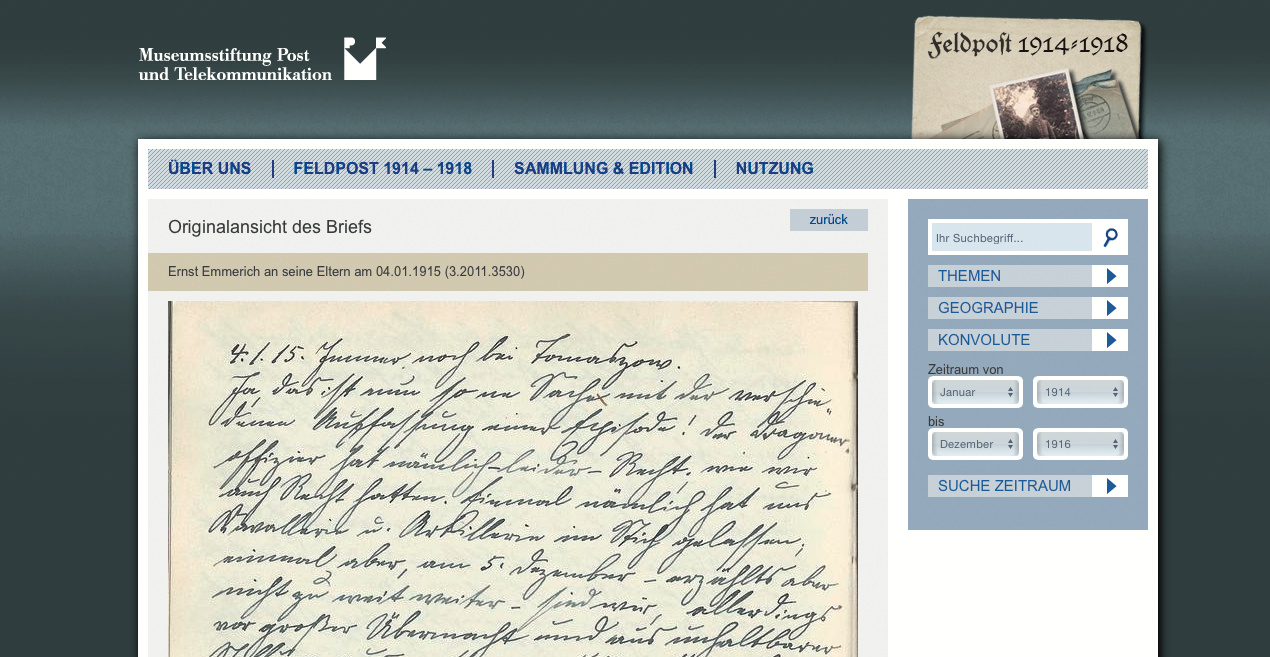 Museumsstiftung Post
und Telekommunikation
Feldpost 1914-1918
ÜBER UNS
FELDPOST 1914 – 1918
SAMMLUNG & EDITION
NUTZUNG
Originalansicht des Briefs
zurück
Ernst Emmerich an seine Eltern am 04.01.1915 (3.2011.3530)
4.1.15. Immer noch bei Tomaszow.
Ja, das ist nun so ne Sache mit der verschie"
denen Auffassung einer Episode! Der Dragoner"
offizier hat nämlich - leider - Recht, wie wir
auch Recht hatten. Einmal nämlich hat uns
Kavallerie u. Artillerie im Stich gelassen;
einmal aber, am 5. Dezember - erzählts aber
nicht zu weit weiter - sind wir, allerdings
vor großer Übermacht und aus unhaltbarer
Ihr Suchbegriff...
THEMEN
GEOGRAPHIE
KONVOLUTE
Zeitraum von
Januar
1914
bis
Dezember
1916
SUCHE ZEITRAUM